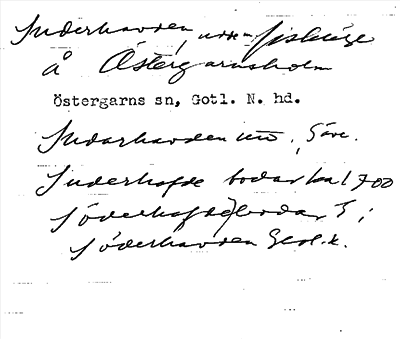 Suderhavden, utm fiskeläge
å Östergarnsholm
Östergarns sn, Gotl. N. hd.
Sudarhavden
Suderhafde bodar ka 1700
Söderhafde bodar
Söderhavden Geol. k.